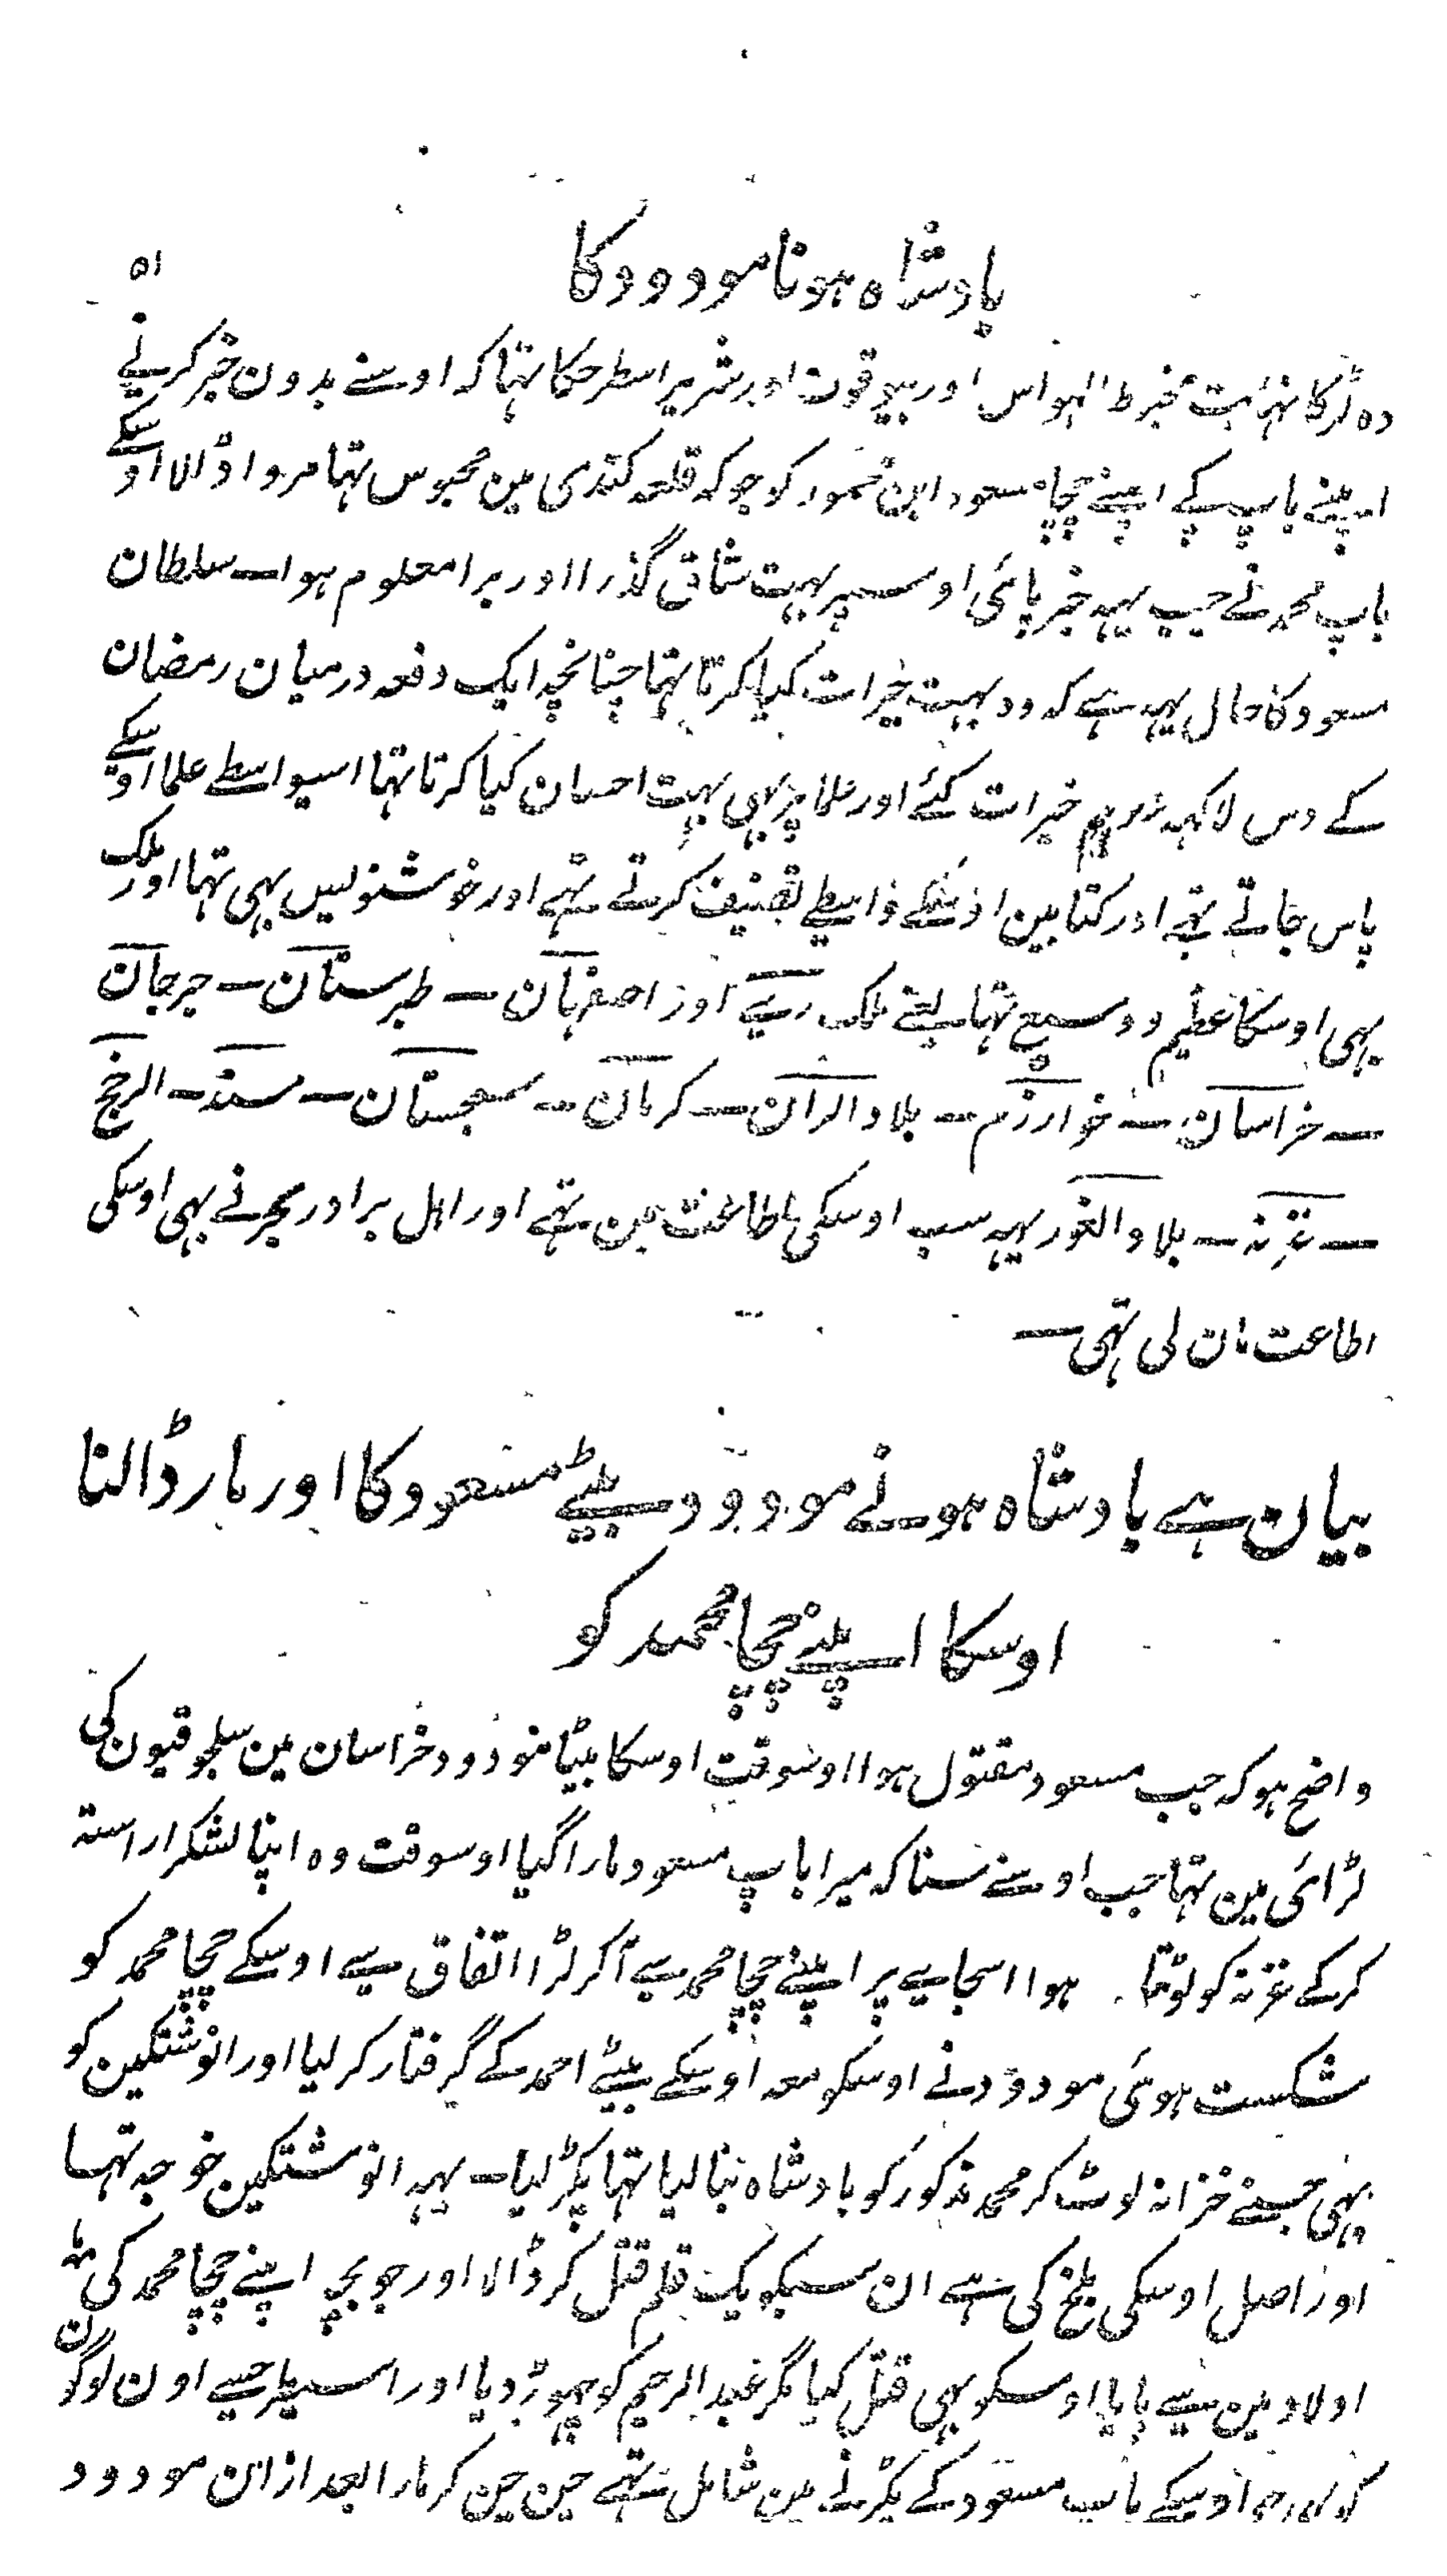 بادشاہ ہونا مودود کا
۵۱
وہ لڑکا نہایت مخبط الہواس اور بیوقوف اور شریر اسطرحکا تہا کہ اوسنے بدون خبر کرنے
اپنے باپ کے اپنے چچا مسعود ابن محمود کو جو کہ قلعہ کندی مین محبوس تہا مروا ڈالا اوسکے
باپ محمد نے جب یہہ خبر پائی اوسپر بہت شاق گذرا اور برا معلوم ہوا ۔ سلطان
مسعود کا حال یہہ ہے کہ وہ بہت خیرات کیا کرتا تہا چنانچہ ایک دفعہ درمیان رمضان
کے دس لاکہہ درہم خیرات کئے اور علما پر بہی بہت احسان کیا کرتا تہا اسیواسطے علما اوسکے
پاس جاتے تہے اور کتابین اوسکے واسطے تصنیف کرتے تہے اور خوشنویس بہی تہا اور ملک
بہی اوسکا عظیم و وسیع تہا یعنے ملک رے اور اصفہان ۔ طبرستان ۔ جرجان
۔ خراسان ۔ خوارزم ۔ بلاد الران ۔ کرمان ۔ سجستان ۔ سند ۔ الرخج
۔ غزنہ ۔ بلاد الغور یہہ سب اوسکی اطاعت مین تہے اور اہل بر اور بحر نے بہی اوسکی
اطاعت مان لی تہی ۔
بیان ہے بادشاہ ہونے مودود بیٹے مسعود کا اور مار ڈالنا
اوسکا اپنے چچا محمد کو
واضح ہو کہ جب مسعود مقتول ہوا اوسوقت اوسکا بیٹا مودود خراسان مین سلجوقیون کی
لڑائی مین تہا جب اوسنے سنا کہ میرا باپ مسعود مارا گیا اوسوقت وہ اپنا لشکر اراستہ
کرکے غزنہ کو لوٹتا ہوا اسجاے پر اپنے چچا محمد سے آکر لڑا اتفاق سے اوسکے چچا محمد کو
شکست ہوئی مودود نے اوسکو معہ اوسکے بیٹے احمد کے گرفتار کر لیا اور انوشتکین کو
بہی جسنے خزانہ لوٹ کر محمد مذکور کو بادشاہ بنا لیا تہا پکڑ لیا ۔ یہہ انوشتکین خوجہ تہا
اور اصل اوسکی بلخ کی ہے ان سبکو یک قلم قتل کر ڈالا اور جو بچہ اپنے چچا محمد کی
اولاد مین سے پایا اوسکو بہی قتل کیا مگر عبد الرحیم کو چہوڑ دیا اور اسیطرحسے اون لوگون
کو اوسکے باپ مسعود کے پکڑنے مین شامل تہے چن چن کر مارا بعد ازان مودود